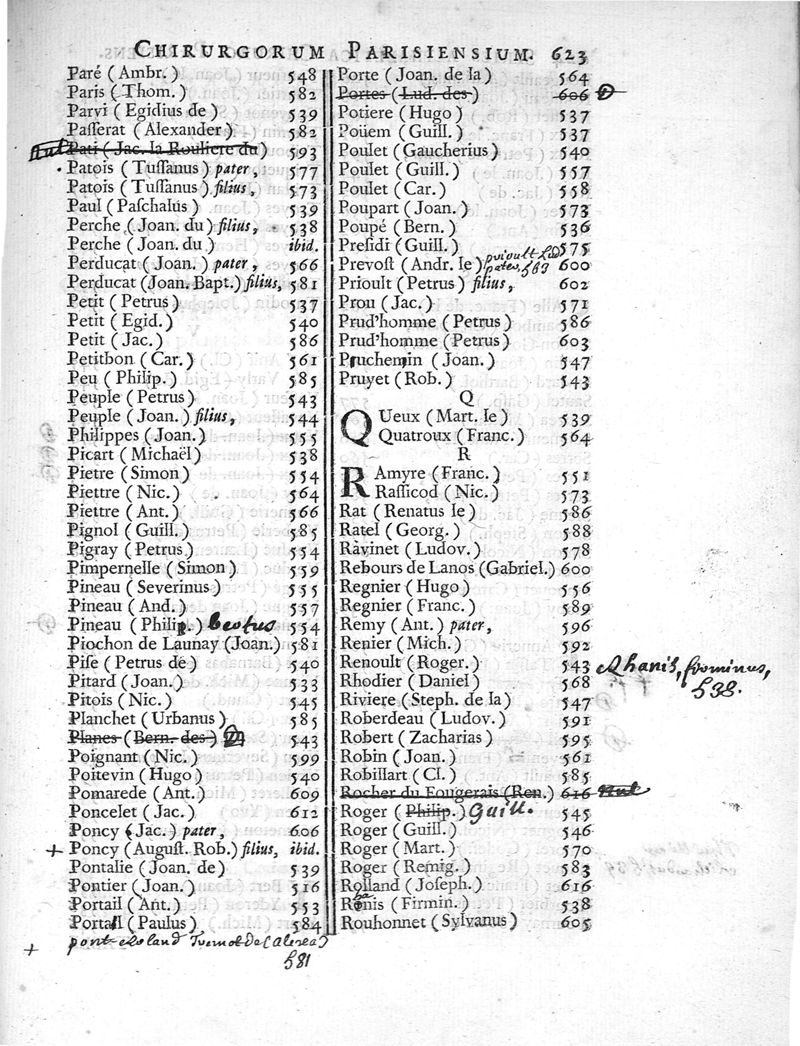 CHIRURGORUM PARISIENSIUM. 623
Paré (Ambr.) 548
Paris (Thom.) 582
Parvi (Egidius de) 539
Paſſerat (Alexander) 582
Pati (Jac. la Rouliere du) 593
Patois (Tuſſanus) pater, 577
Patois (Tuſſanus) filius, 573
Paul (Paſchalus) 539
Perche (Joan. du) filius, 538
Perche (Joan. du) ibid.
Perducat (Joan.) pater, 566
Perducat (Joan. Bapt.) filius, 581
Petit (Petrus) 537
Petit (Egid.) 540
Petit (Jac.) 586
Petitbon (Car.) 561
Peu (Philip.) 585
Peuple (Petrus) 543
Peuple (Joan.) filius, 544
Philippes (Joan.) 555
Picart (Michaël) 538
Pietre (Simon) 554
Piettre (Nic.) 564
Piettre (Ant.) 566
Pignol (Guill.) 585
Pigray (Petrus) 554
Pimpernelle (Simon) 559
Pineau (Severinus) 555
Pineau (And.) 557
Pineau (Philip.) 554
Piochon de Launay (Joan.) 581
Piſe (Petrus de) 540
Pitard (Joan.) 533
Pitois (Nic.) 545
Planchet (Urbanus) 585
Planes (Bern. des) 543
Poignant (Nic.) 599
Poitevin (Hugo) 540
Pomarede (Ant.) 609
Poncelet (Jac.) 612
Poncy (Jac.) pater, 606
+ Poncy (Auguſt. Rob.) filius, ibid.
Pontalie (Joan. de) 539
Pontier (Joan.) 516
Portail (Ant.) 553
Portail (Paulus) 584
+
581
Porte (Joan. de la) 564
Portes (Lud. des) 606
Potiere (Hugo) 537
Poüem (Guill.) 537
Poulet (Gaucherius) 540
Poulet (Guill.) 557
Poulet (Car.) 558
Poupart (Joan.) 573
Poupé (Bern.) 536
Preſidi (Guill.) 575
prioult Lud
Prevoſt (Andr. le) pater, 569 600
Prioult (Petrus) filius, 602
Prou (Jac.) 571
Prud'homme (Petrus) 586
Prud'homme (Petrus) 603
Pruchemin (Joan.) 547
Pruyet (Rob.) 543
Q
QUeux (Mart. le) 539
Quatroux (Franc.) 564
R
RAmyre (Franc.) 551
Raſſicod (Nic.) 573
Rat (Renatus le) 586
Ratel (Georg.) 588
Ravinet (Ludov.) 578
Rebours de Lanos (Gabriel.) 600
Regnier (Hugo) 556
Regnier (Franc.) 589
Remy (Ant.) pater, 596
Renier (Mich.) 592
Renoult (Roger.) 543
Rhanis, frominus,
538.
Rhodier (Daniel) 568
Riviere (Steph. de la) 547
Roberdeau (Ludov.) 591
Robert (Zacharias) 595
Robin (Joan.) 561
Robillart (Cl.) 585
Rocher du Fougerais (Ren.) 616
Roger (Philip.) Guill. 545
Roger (Guill.) 546
Roger (Mart.) 570
Roger (Remig.) 583
Rolland (Joſeph.) 616
Ronis (Firmin.) 538
Rouhonnet (Sylvanus) 605